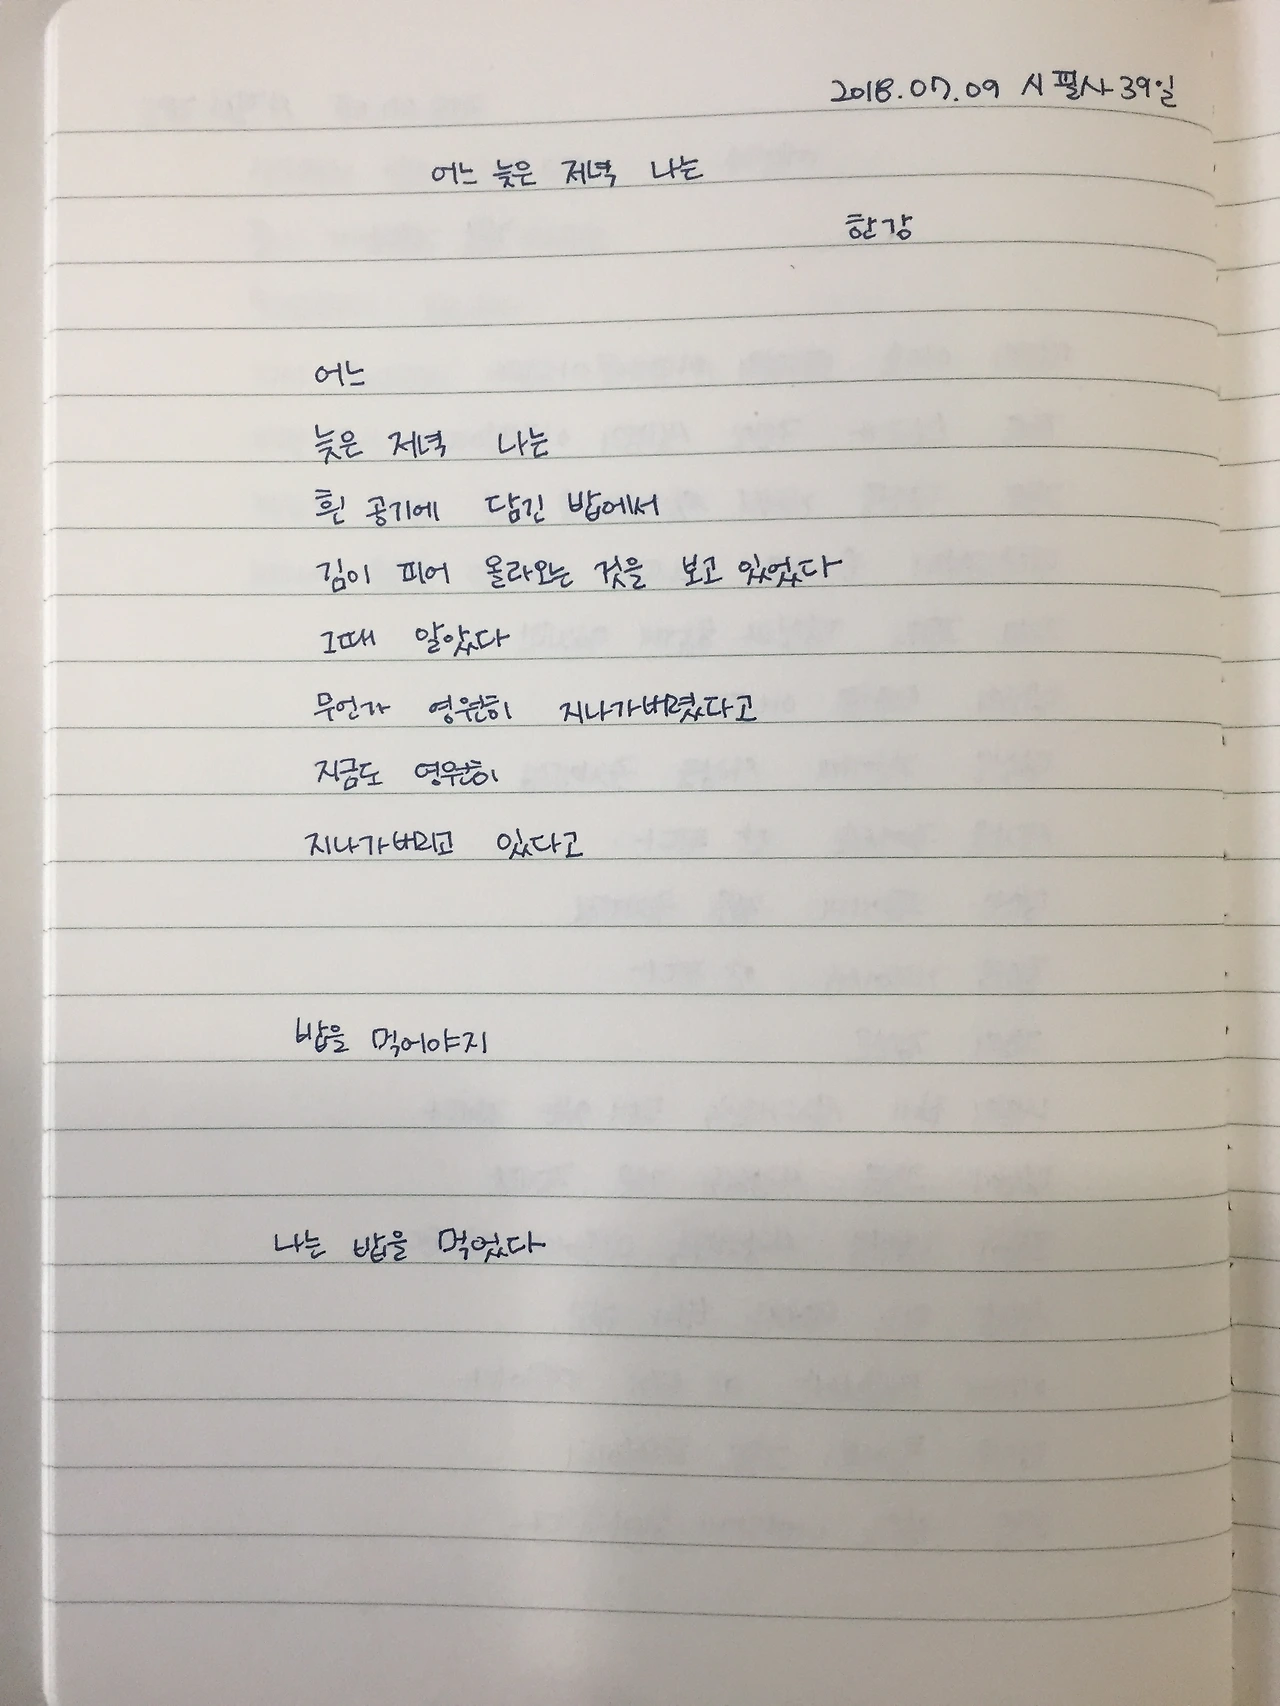 2018.07.09 시필사 39일
어느 늦은 저녁 나는
한강
어느
늦은 저녁 나는
흰 공기에 담긴 밥에서
김이 피어 올라오는 것을 보고 있었다
그때 알았다
무언가 영원히 지나가버렸다고
지금도 영원히
지나가버리고 있다고
밥을 먹어야지
나는 밥을 먹었다